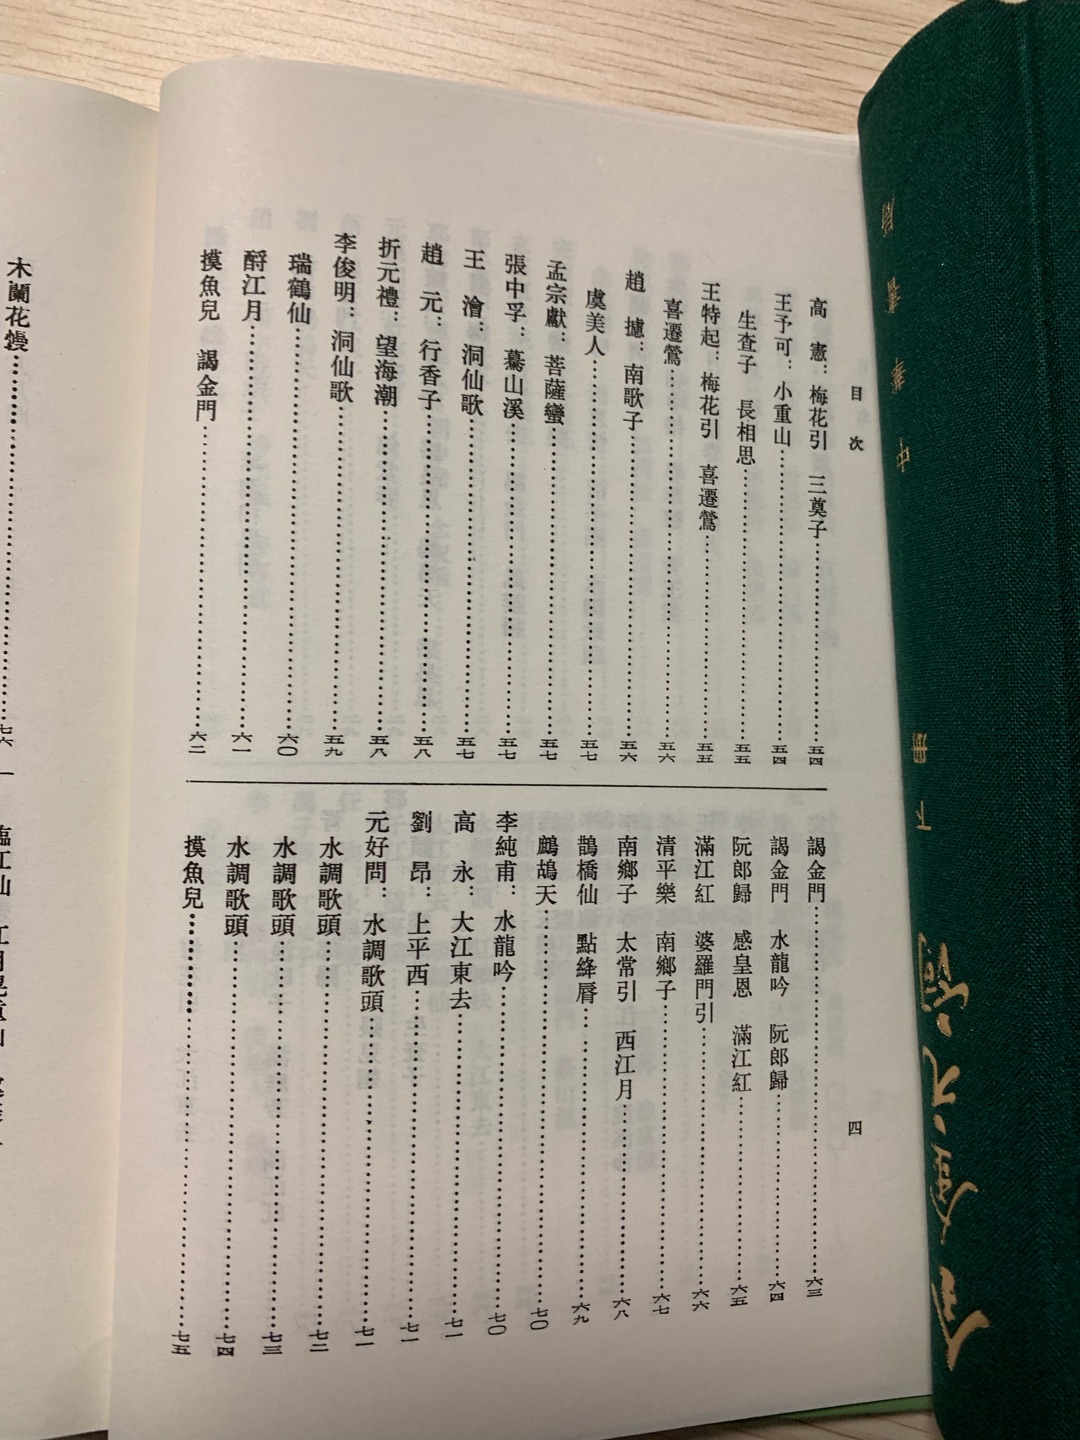 目次
高　憲：梅花引　三奠子……五四
王予可：小重山……五四
生查子　長相思……五五
王特起：梅花引　喜遷鶯……五五
喜遷鶯……五六
趙　攄：南歌子……五六
虞美人……五七
孟宗獻：菩薩蠻……五七
張中孚：驀山溪……五七
王　澮：洞仙歌……五七
趙　元：行香子……五八
折元禮：望海潮……五八
李俊明：洞仙歌……五九
瑞鶴仙……六〇
酹江月……六一
摸魚兒　謁金門……六二
謁金門……六三
謁金門　水龍吟　阮郎歸……六四
阮郎歸　感皇恩　滿江紅……六五
滿江紅　婆羅門引……六六
清平樂　南鄉子……六七
南鄉子　太常引　西江月……六八
鵲橋仙　點絳脣……六九
鷓鴣天……七〇
李純甫：水龍吟……七〇
高　永：大江東去……七一
劉　昂：上平西……七一
元好問：水調歌頭……七一
水調歌頭……七二
水調歌頭……七三
水調歌頭……七四
摸魚兒……七五
四
木蘭花慢……七六
臨江仙
全金元詞
下冊
中華書局